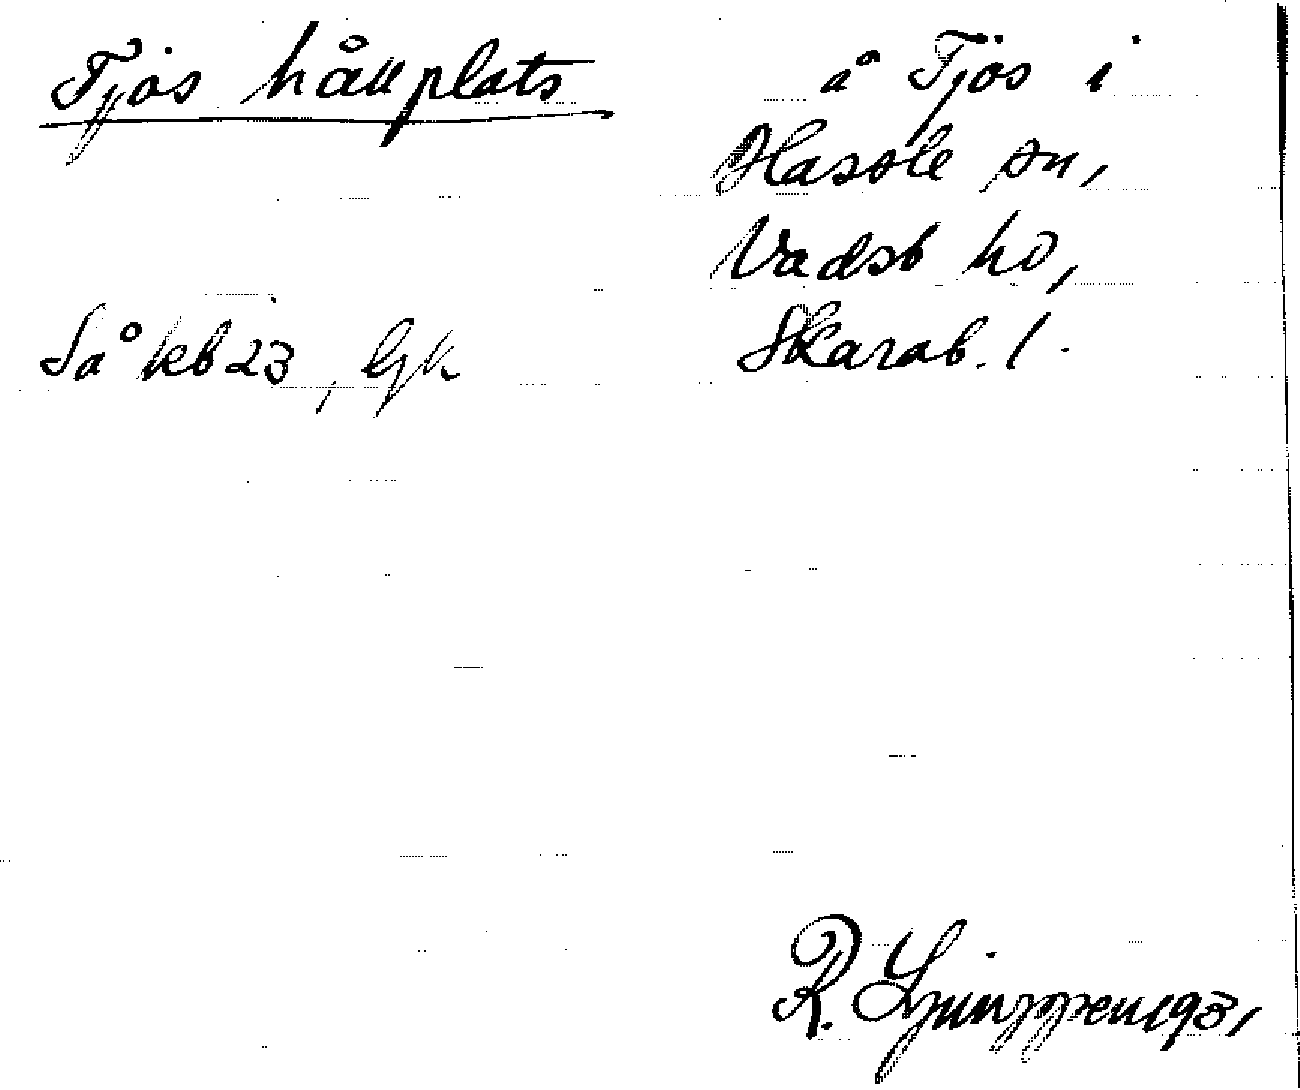 Tjos hållplats
å Tjös i
Hassle sn,
Vadsb hd,
Skarab. l.
Så kb 23, Gk
R. Ljunggren 1931